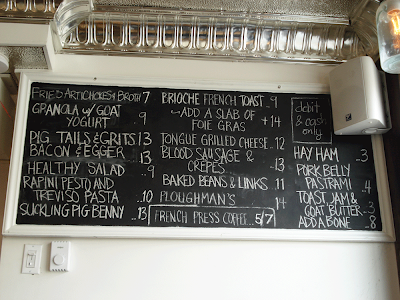 FRIED ARTICHOKES & BROTH 7
GRANOLA w/ GOAT
YOGURT 9
PIG TAILS & GRITS 13
BACON & EGGER 13
HEALTHY SALAD 9
RAPINI PESTO AND
TREVISO PASTA ..10
SUCKLING PIG BENNY ..13
BRIOCHE FRENCH TOAST .9
ADD A SLAB OF
FOIE GRAS +14
TONGUE GRILLED CHEESE.. 12
BLOOD SAUSAGE &
CREPES ..13
BAKED BEANS & LINKS 11
PLOUGHMAN'S 14
FRENCH PRESS COFFEE.. 5/7
debit
& cash
only
HAY HAM ..3
PORK BELLY
PASTRAMI ..4
TOAST, JAM &
GOAT BUTTER ..3
ADD A BONE ..8